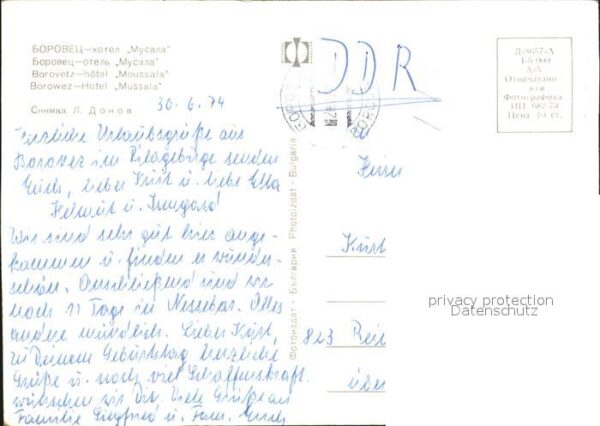 БОРОВЕЦ—хотел „Мусала"
Боровец—отель „Мусала"
Borovetz—hôtel „Moussala"
Borowez—Hotel „Mussala"
Снимка Л. Донов
30.6.74
Herzliche Urlaubsgrüße aus
Borovez im Rilagebirge senden
Euch, lieber Kurt u. liebe Ella
Helmut u. Irmgard
Wir sind sehr gut hier ange-
kommen u. finden es wunder-
schön. Anschließend sind wir
noch 11 Tage in Nessebar. Alles
andere mündlich. Lieber Kurt,
zu Deinem Geburtstag herzliche
Grüße u. noch viel Schaffenskraft
wünschen wir Dir. Viele Grüße an
Familie Siegfried u. Fam.
Фотоиздат - България Photoizdat - Bulgaria
DDR
Д-8657-А
А-5
Отпечатано-
Фотографика
Цена 10 ст.
Herrn
Kurt
823
über
privacy protection
Datenschutz